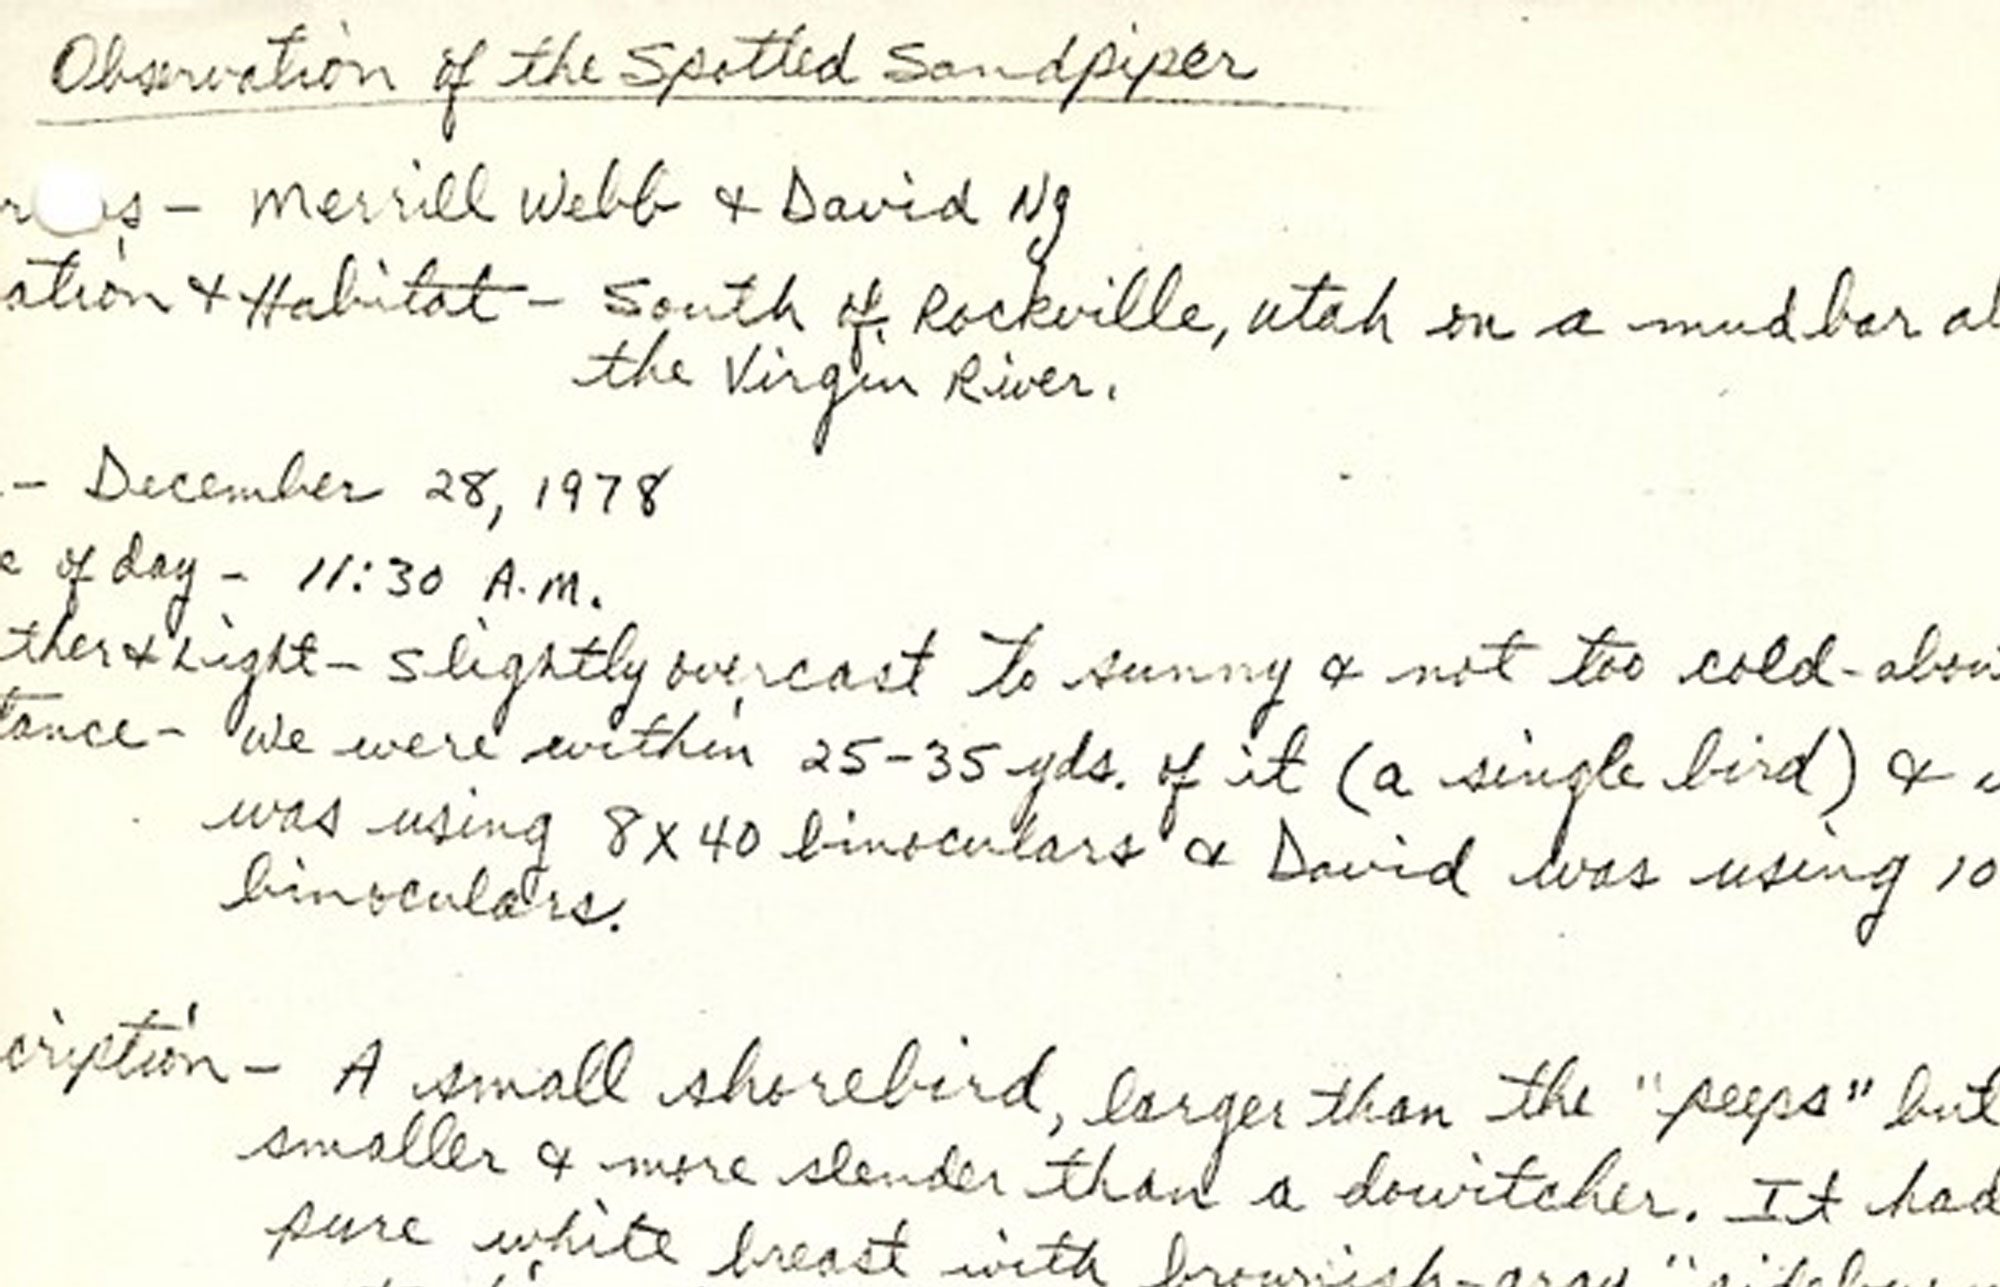 Observation of the Spotted Sandpiper
s - Merrill Webb & David Ng
ation & Habitat - South of Rockville, Utah on a mudbar al
the Virgin River.
- December 28, 1978
e of day - 11:30 A.M.
ther & Light - Slightly overcast to sunny & not too cold - abou
tance - We were within 25-35 yds. of it (a single bird) &
was using 8x40 binoculars & David was using 10
binoculars.
cription - A small shorebird, larger than the "peeps" but
smaller & more slender than a dowitcher. It had
pure white breast with brownish-gray